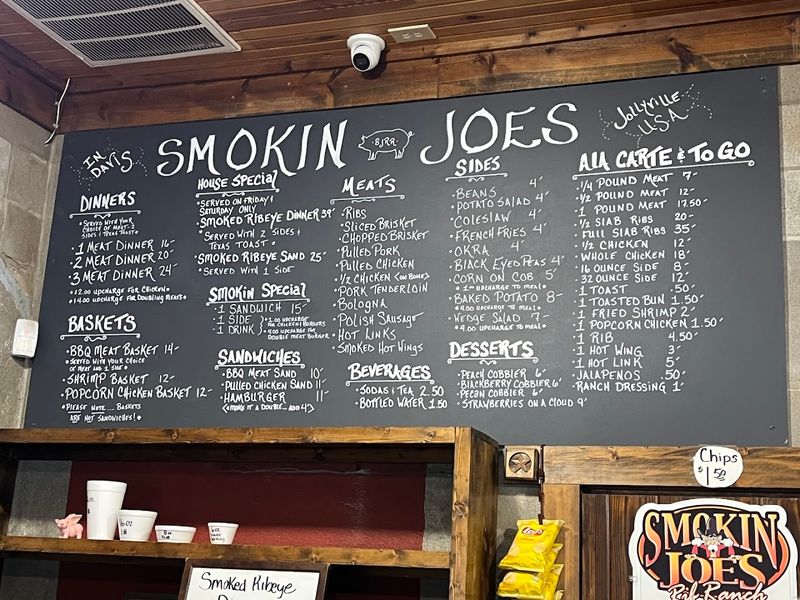 SMOKIN JOES
IN DAVIS
BJRR
JOLLYVILLE USA
DINNERS
• SERVED WITH YOUR
CHOICE OF MEAT - 2
SIDES & TEXAS TOAST •
• 1 MEAT DINNER 16-
• 2 MEAT DINNER 20-
• 3 MEAT DINNER 24-
• $2.00 UPCHARGE FOR CHICKEN •
• $4.00 UPCHARGE FOR DOUBLING MEATS •
BASKETS
• BBQ MEAT BASKET 14-
• SERVED WITH YOUR CHOICE
OF MEAT AND 1 SIDE •
• SHRIMP BASKET 12-
• POPCORN CHICKEN BASKET 12-
• PLEASE NOTE... BASKETS
ARE NOT SANDWICHES! •
HOUSE SPECIAL
• SERVED ON FRIDAY &
SATURDAY ONLY
SMOKED RIBEYE DINNER 39-
• SERVED WITH 2 SIDES &
TEXAS TOAST •
SMOKED RIBEYE SAND 25-
• SERVED WITH 1 SIDE
SMOKIN SPECIAL
• 1 SANDWICH 15-
• 1 SIDE
• 1 DRINK
• 1.00 UPCHARGE
FOR CHICKEN & BURGERS
• 4.00 UPCHARGE FOR
DOUBLE MEAT BURGER
SANDWICHES
• BBQ MEAT SAND 10-
• PULLED CHICKEN SAND 11-
• HAMBURGER 11-
<MAKE IT A DOUBLE... ADD 4->
MEATS
• RIBS
• SLICED BRISKET
• CHOPPED BRISKET
• PULLED PORK
• PULLED CHICKEN
• 1/2 CHICKEN (ON BONE)
• PORK TENDERLOIN
• BOLOGNA
• POLISH SAUSAGE
• HOT LINKS
• SMOKED HOT WINGS
BEVERAGES
• SODAS & TEA 2.50
• BOTTLED WATER 1.50
SIDES
• BEANS 4-
• POTATO SALAD 4-
• COLESLAW 4-
• FRENCH FRIES 4-
• OKRA 4-
• BLACK EYED PEAS 4-
• CORN ON COB 5-
• 1- UPCHARGE TO MEAL •
• BAKED POTATO 8-
• 4.00 UPCHARGE TO MEAL •
• WEDGE SALAD 7-
• 4.00 UPCHARGE TO MEAL •
DESSERTS
• PEACH COBBLER 6-
• BLACKBERRY COBBLER 6-
• PECAN COBBLER 6-
• STRAWBERRIES ON A CLOUD 9-
ALA CARTE & TO GO
• 1/4 POUND MEAT 7-
• 1/2 POUND MEAT 12-
• 1 POUND MEAT 17.50-
• 1/2 SLAB RIBS 20-
• FULL SLAB RIBS 35-
• 1/2 CHICKEN 12-
• WHOLE CHICKEN 18-
• 16 OUNCE SIDE 8-
• 32 OUNCE SIDE 12-
• 1 TOAST .50-
• 1 TOASTED BUN 1.50-
• 1 FRIED SHRIMP 2-
• 1 POPCORN CHICKEN 1.50-
• 1 RIB 4.50-
• 1 HOT WING 3-
• 1 HOT LINK 5-
• JALAPENOS .50-
• RANCH DRESSING 1-
Chips
$1.50
SMOKIN
JOES
Rib Ranch
Smoked Ribeye